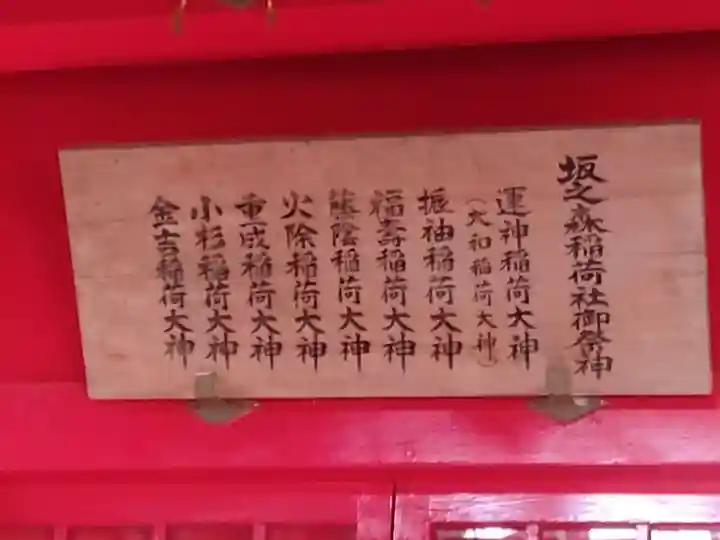 坂之森稲荷社御祭神
運神稲荷大神
(大和稲荷大神)
振袖稲荷大神
福壽稲荷大神
藤陰稲荷大神
火除稲荷大神
重成稲荷大神
小杉稲荷大神
金吉稲荷大神